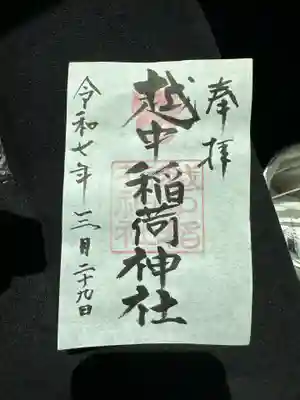 奉拝
越中稲荷神社
令和七年三月二十九日